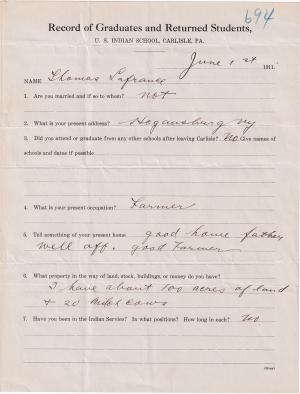 694
Record of Graduates and Returned Students,
U. S. INDIAN SCHOOL, CARLISLE, PA.
June 1st 1911
NAME Thomas Lafrance
1. Are you married and if so to whom? not
2. What is your present address? Hogansburg Ny
3. Did you attend or graduate from any other schools after leaving Carlisle? No Give names of
schools and dates if possible
4. What is your present occupation? Farmer
5. Tell something of your present home good home father
well off. good Farmer
6. What property in the way of land, stock, buildings, or money do you have?
I have about 100 acres of land
+ 20 milch cows
7. Have you been in the Indian Service? In what positions? How long in each? no